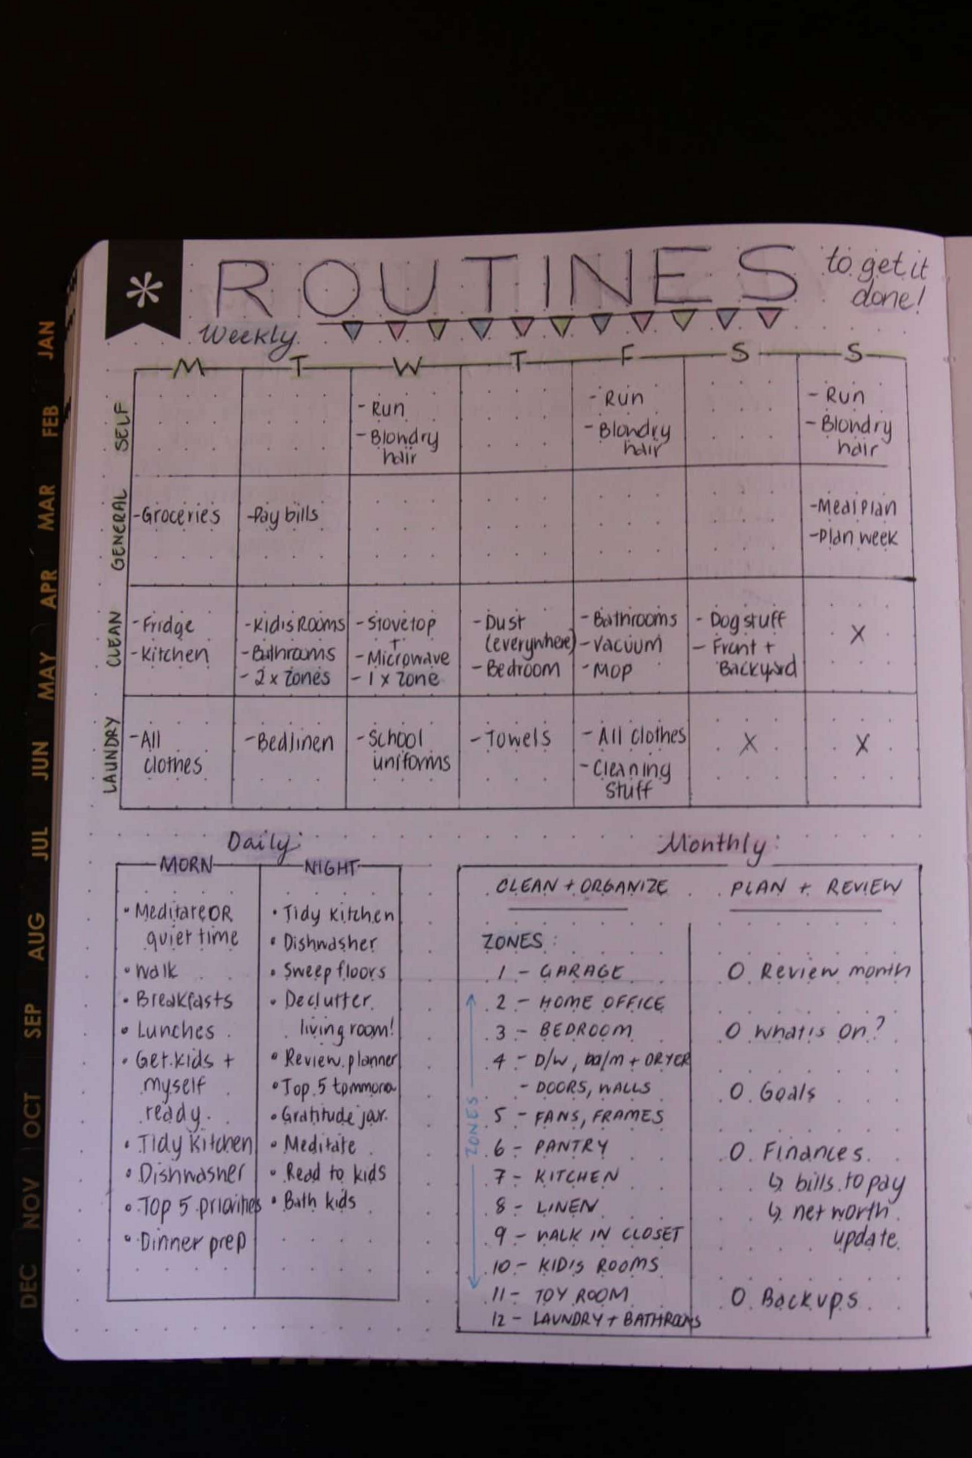 ROUTINES
to get it
done!
Weekly
M T W T F S S
SELF
- Run
- Blondry
hair
- Run
- Blondry
hair
- Run
- Blondry
hair
GENERAL
- Groceries
- Pay bills
- Meal Plan
- Plan week
CLEAN
- Fridge
- Kitchen
- Kid's Rooms
- Bathrooms
- 2 x zones
- Stovetop
+
- Microwave
- 1 x zone
- Dust
(everywhere)
- Bedroom
- Bathrooms
- Vacuum
- Mop
- Dog stuff
- Front +
Backyard
X
LAUNDRY
- All
clothes
- Bedlinen
- School
uniforms
- Towels
- All clothes
- Cleaning
stuff
X
X
Daily:
MORN
• Meditate OR
quiet time
• Walk
• Breakfasts
• Lunches
• Get kids +
myself
ready.
• Tidy kitchen
• Dishwasher
• Top 5 priorities
• Dinner prep
NIGHT
• Tidy kitchen
• Dishwasher
• Sweep floors
• Declutter
living room!
• Review planner
• Top 5 tommora
• Gratitude jar.
• Meditate
• Read to kids
• Bath kids
Monthly:
CLEAN + ORGANIZE
ZONES:
1 - GARAGE
2 - HOME OFFICE
3 - BEDROOM
4 - D/W, W/M + DRYER
- DOORS, WALLS
5 - FANS, FRAMES
6 - PANTRY
7 - KITCHEN
8 - LINEN
9 - WALK IN CLOSET
10 - KID'S ROOMS
11 - TOY ROOM
12 - LAUNDRY + BATHROOMS
ZONES
PLAN + REVIEW
O Review month
O What's on?
O Goals
O Finances
↳ bills to pay
↳ net worth
update.
O Backups
JAN
FEB
MAR
APR
MAY
JUN
JUL
AUG
SEP
OCT
NOV
DEC